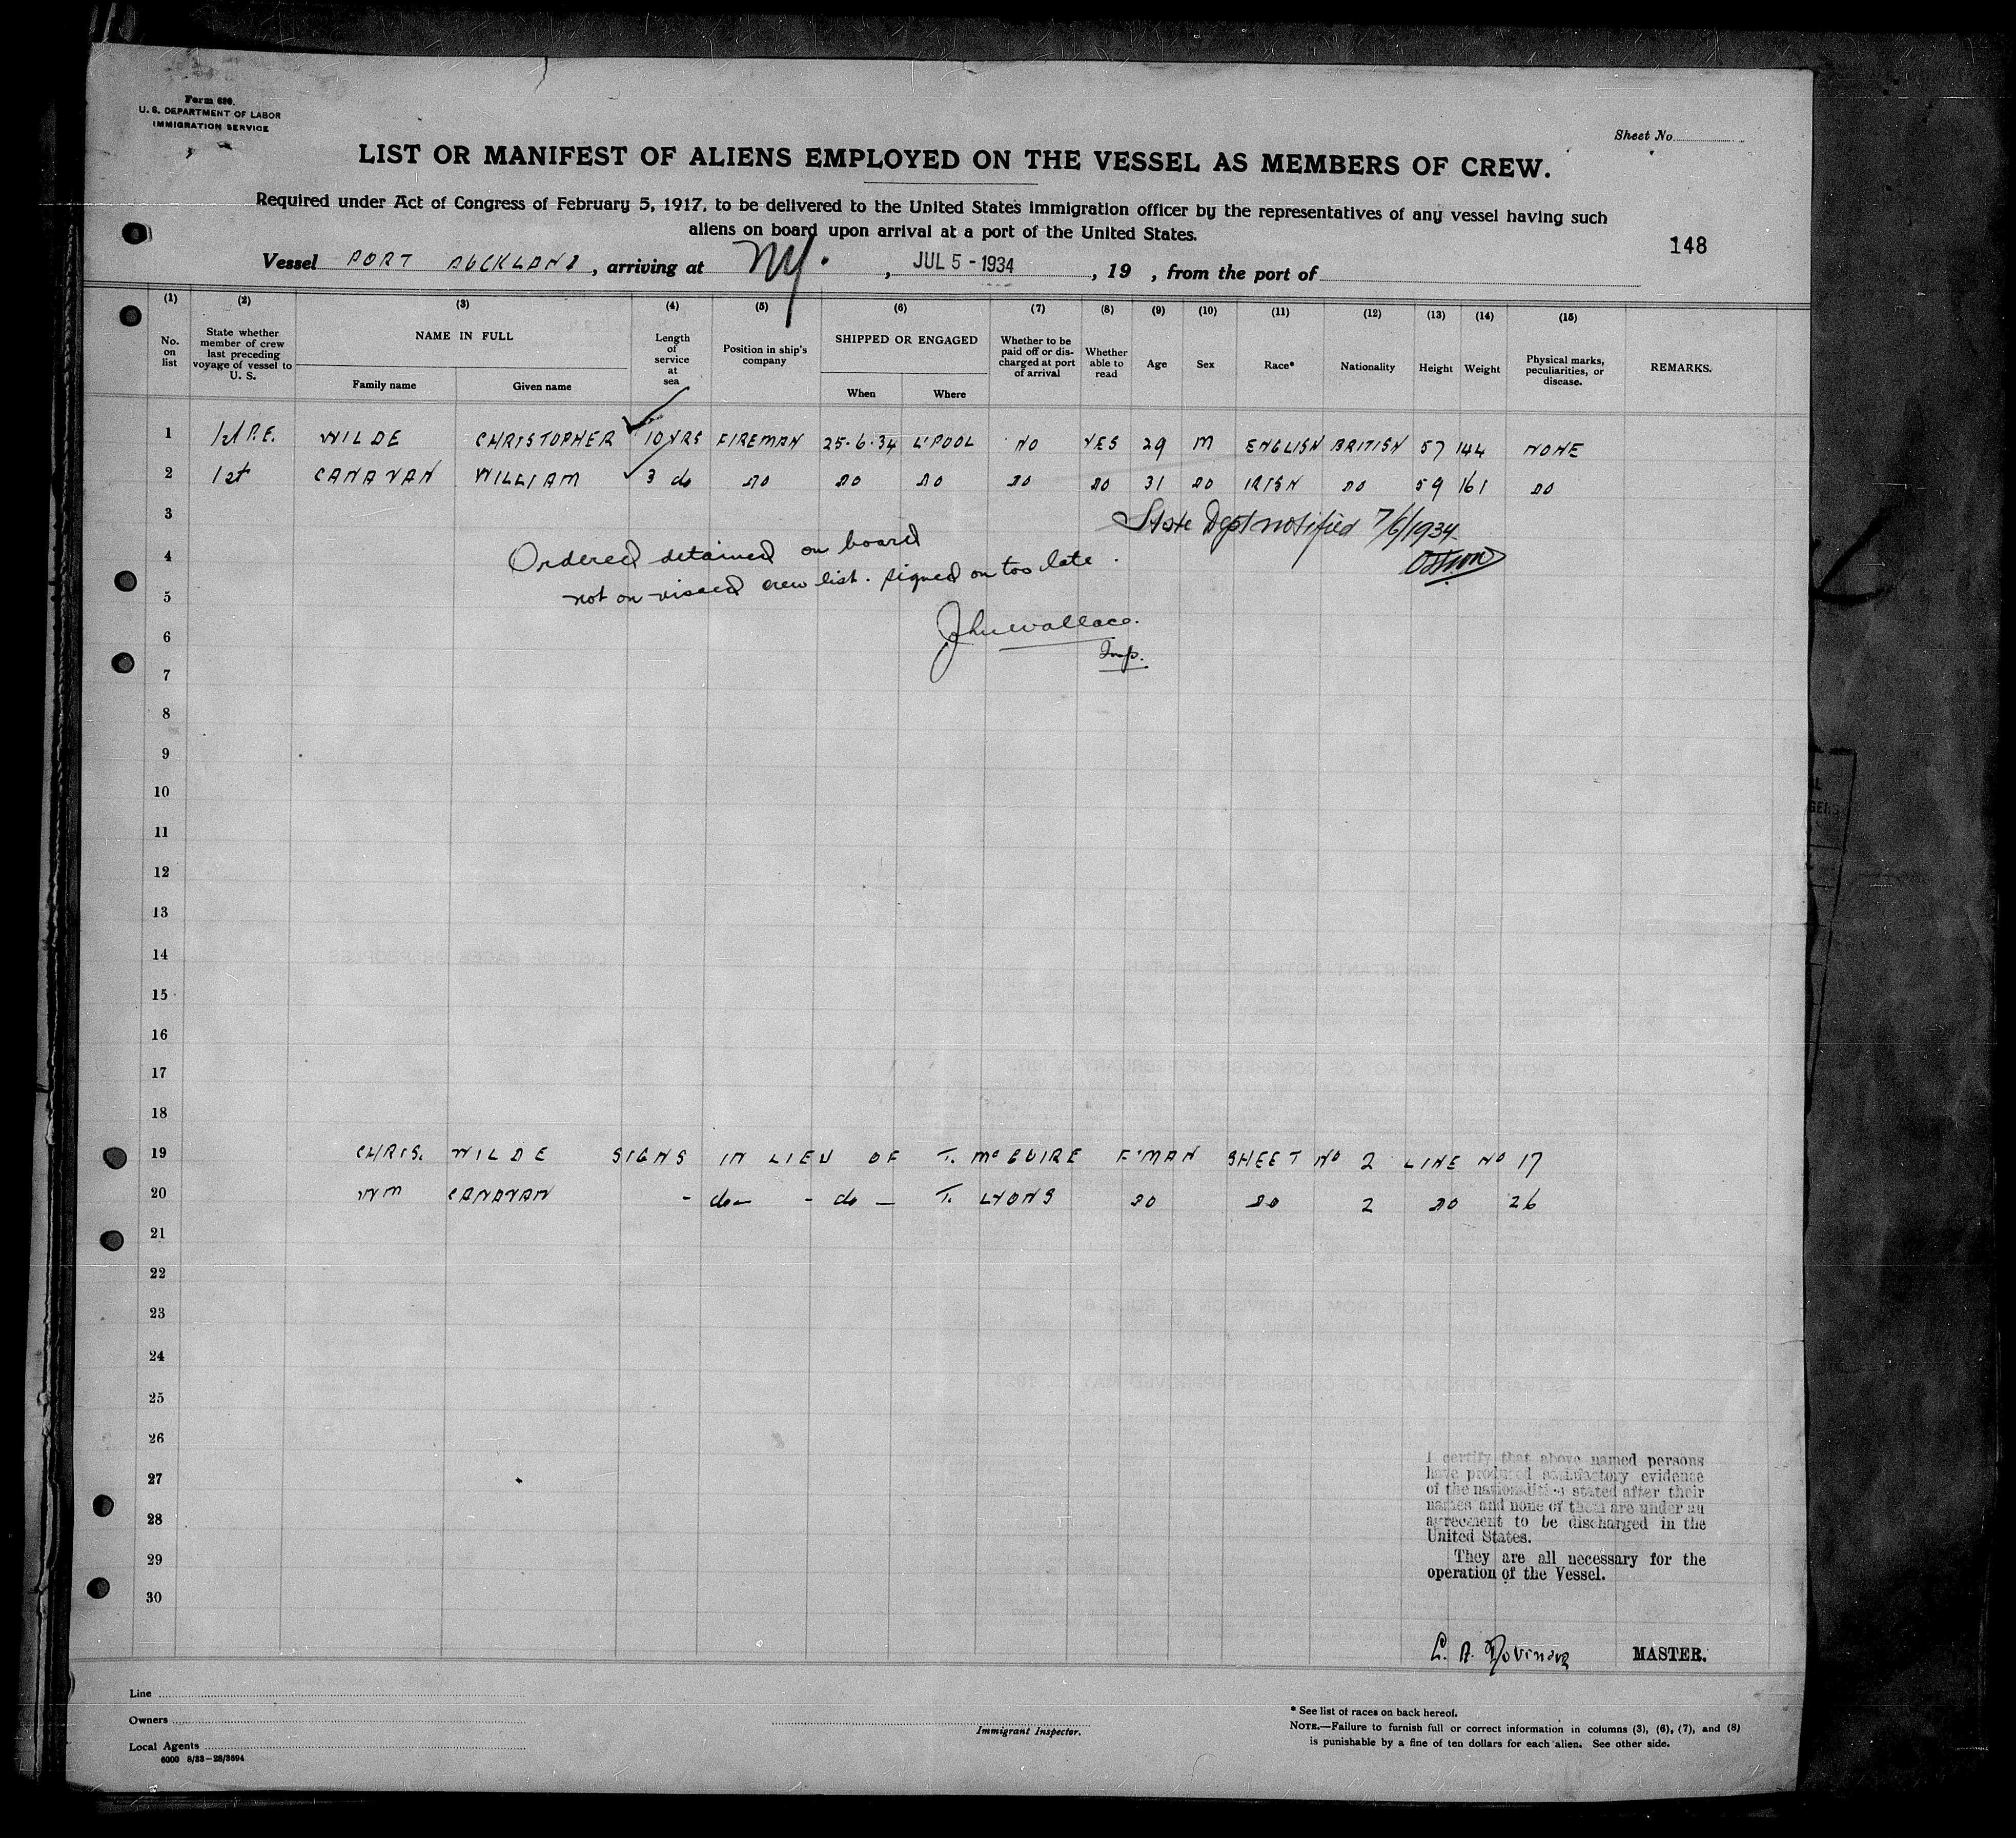 Form 680.
U. S. DEPARTMENT OF LABOR
IMMIGRATION SERVICE
Sheet No
LIST OR MANIFEST OF ALIENS EMPLOYED ON THE VESSEL AS MEMBERS OF CREW.
Required under Act of Congress of February 5, 1917, to be delivered to the United States immigration officer by the representatives of any vessel having such
aliens on board upon arrival at a port of the United States.
148
Vessel PORT AUCKLAND, arriving at NY., JUL 5 - 1934, 19 , from the port of
(1) (2) (3) (4) (5) (6) (7) (8) (9) (10) (11) (12) (13) (14) (15)
No. on list
State whether member of crew last preceding voyage of vessel to U. S.
NAME IN FULL
Family name Given name
Length of service at sea
Position in ship's company
SHIPPED OR ENGAGED
When Where
Whether to be paid off or discharged at port of arrival
Whether able to read
Age Sex Race* Nationality Height Weight
Physical marks, peculiarities, or disease.
REMARKS.
1 1st P.E. WILDE CHRISTOPHER 10 YRS FIREMAN 25-6-34 L'POOL NO YES 29 M ENGLISH BRITISH 57 144 NONE
2 1st CANAVAN WILLIAM 3 do DO DO DO DO DO 31 DO IRISH DO 59 161 DO
3 State Dept notified 7/6/1934
4 Ordered detained on board
5 not on visaed crew list. signed on too late.
6 John Wallace.
7 Insp.
8
9
10
11
12
13
14
15
16
17
18
19 CHRIS. WILDE SIGNS IN LIEU OF T. McGUIRE F'MAN SHEET No 2 LINE No 17
20 WM CANAVAN - do - - do - T. LYONS DO DO 2 DO 26
21
22
23
24
25
26
27
28
29
30
I certify that above named persons
have produced satisfactory evidence
of the nationalities stated after their
names and none of them are under an
agreement to be discharged in the
United States.
They are all necessary for the
operation of the Vessel.
MASTER.
Line
Owners
Local Agents
6000 8/33—28/3694
Immigrant Inspector.
* See list of races on back hereof.
NOTE.—Failure to furnish full or correct information in columns (3), (6), (7), and (8)
is punishable by a fine of ten dollars for each alien. See other side.